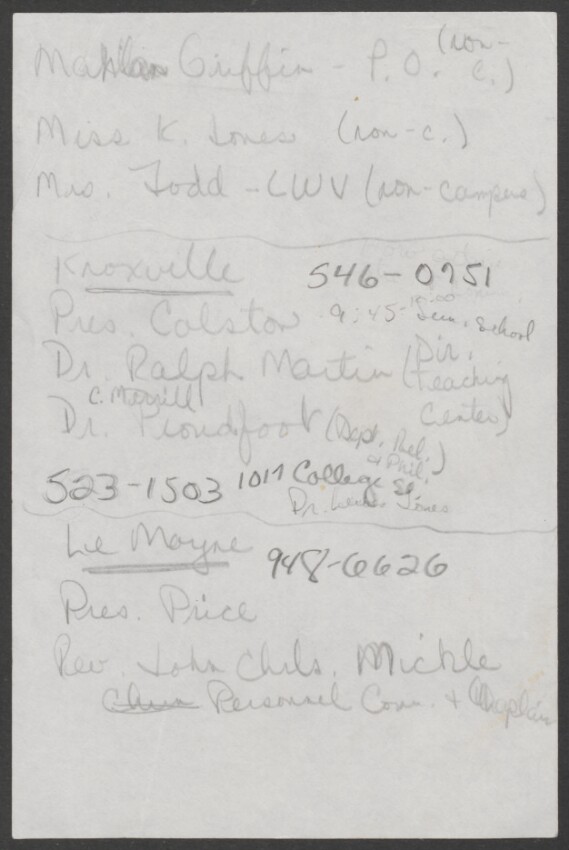 Mahlon Griffin - P.O. (non-c.)
Miss K. Jones (non-c.)
Mrs. Todd - LWV (non-campus)
Knoxville 546-0751
Pres. Colston 9:45-10:00 Sem. School
Dr. Ralph Martin (Dir. Teaching Center)
C. Morrill
Dr. Proudfoot (Dept. Rel. & Phil.)
523-1503 1017 College St.
Dr. Jones
Le Moyne 948-6626
Pres. Price
Rev. John Chls. Mickle
Personnel Com. + Chaplain